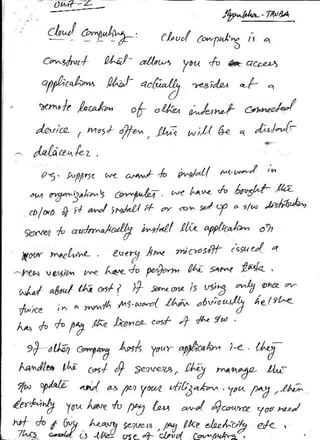 Unit-2
- TRUBA
Cloud Computing : Cloud Computing is a
Construct that allows you to access
applications that actually resides at a
remote location of other internet Connected
device, most often, this will be a distant
datacenter.
e.g. Suppose we want to install ms-word in
our organization's computer. we have to bought the
CD/DVD of it and install it or can set up a s/w distribution
Server to automatically install the application on
your machine. every time microsoft issued a
new version we have to perform the same task.
what about the cost? if some one is using only once or
twice in a month Ms-word then obviously he/she
has to to pay the licence cost of the s/w.
If other Company hosts your application i.e. they
handles the cost of servers, they manage the
s/w update and as per your utilization you pay, then
certainly you have to pay less and ofcourse you need
not to buy heavy servers, pay the electricity etc.
This is the use of cloud Computing.